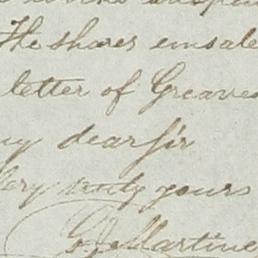 The shares emsale
letter of Greaves
my dear sir
Very truly yours
G. Martine